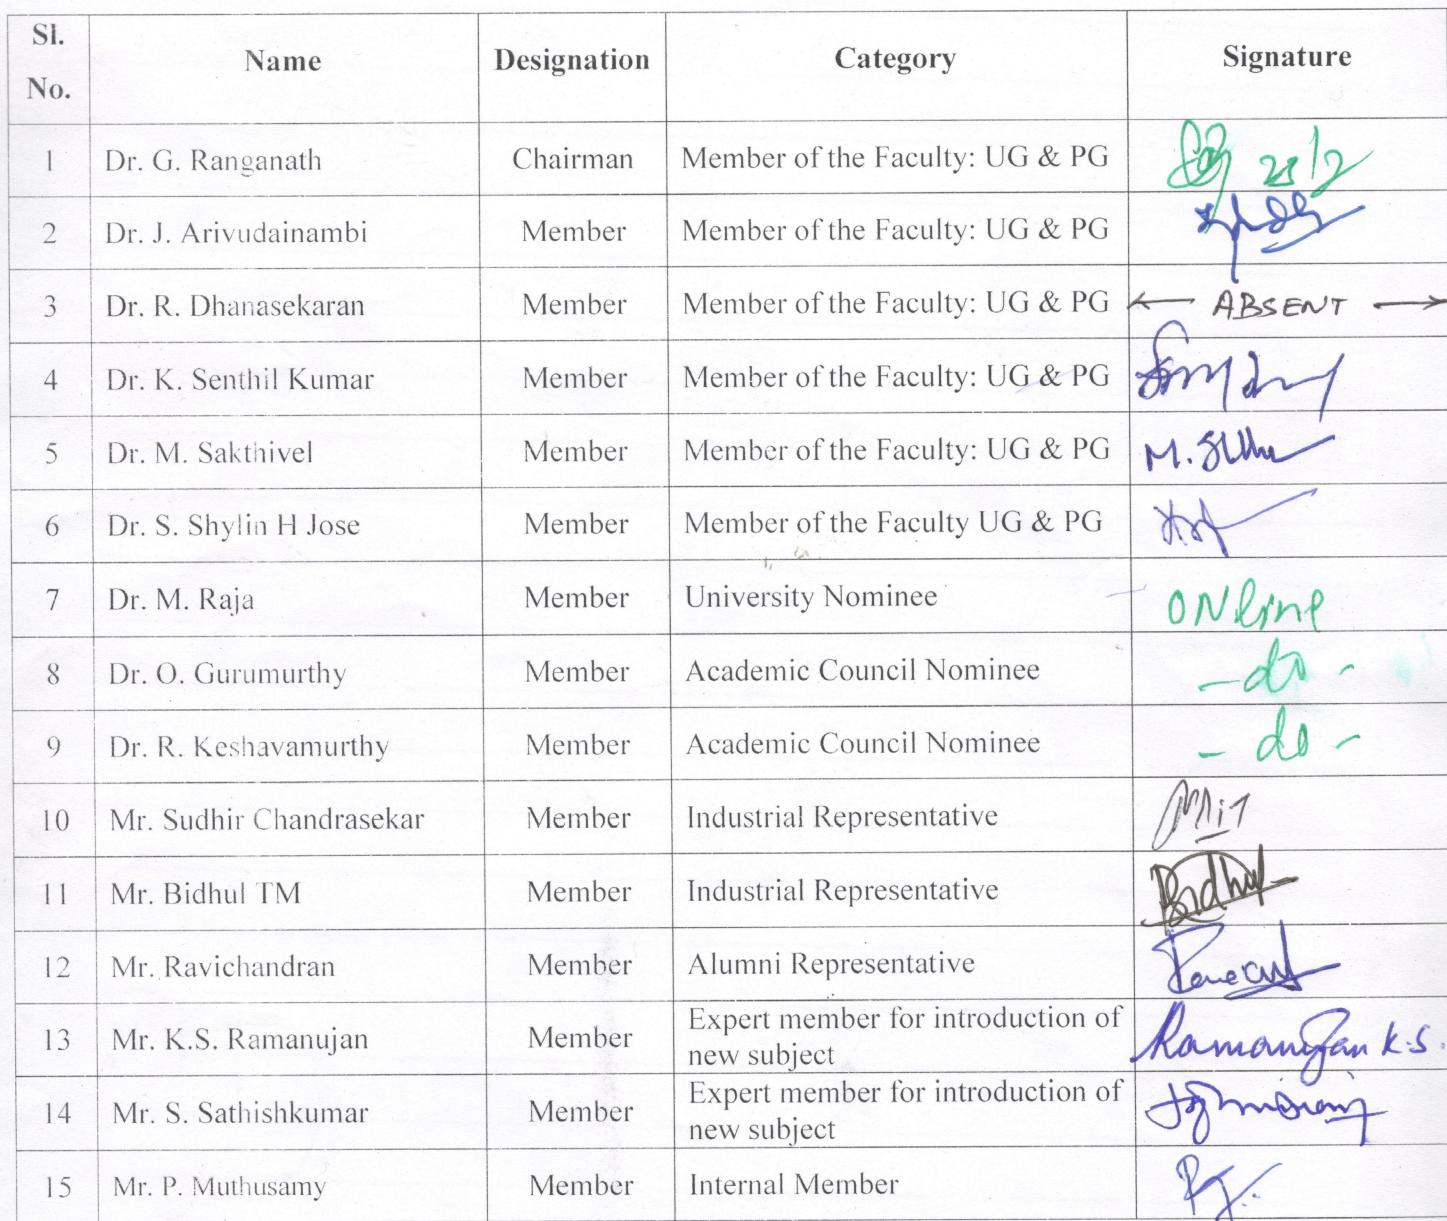 Sl. No. Name Designation Category Signature
1 Dr. G. Ranganath Chairman Member of the Faculty: UG & PG 23/2
2 Dr. J. Arivudainambi Member Member of the Faculty: UG & PG
3 Dr. R. Dhanasekaran Member Member of the Faculty: UG & PG ABSENT
4 Dr. K. Senthil Kumar Member Member of the Faculty: UG & PG
5 Dr. M. Sakthivel Member Member of the Faculty: UG & PG M.
6 Dr. S. Shylin H Jose Member Member of the Faculty UG & PG
7 Dr. M. Raja Member University Nominee ONline
8 Dr. O. Gurumurthy Member Academic Council Nominee - do -
9 Dr. R. Keshavamurthy Member Academic Council Nominee - do -
10 Mr. Sudhir Chandrasekar Member Industrial Representative
11 Mr. Bidhul TM Member Industrial Representative Bidhul
12 Mr. Ravichandran Member Alumni Representative
13 Mr. K.S. Ramanujan Member Expert member for introduction of
new subject Ramanujan K.S.
14 Mr. S. Sathishkumar Member Expert member for introduction of
new subject
15 Mr. P. Muthusamy Member Internal Member